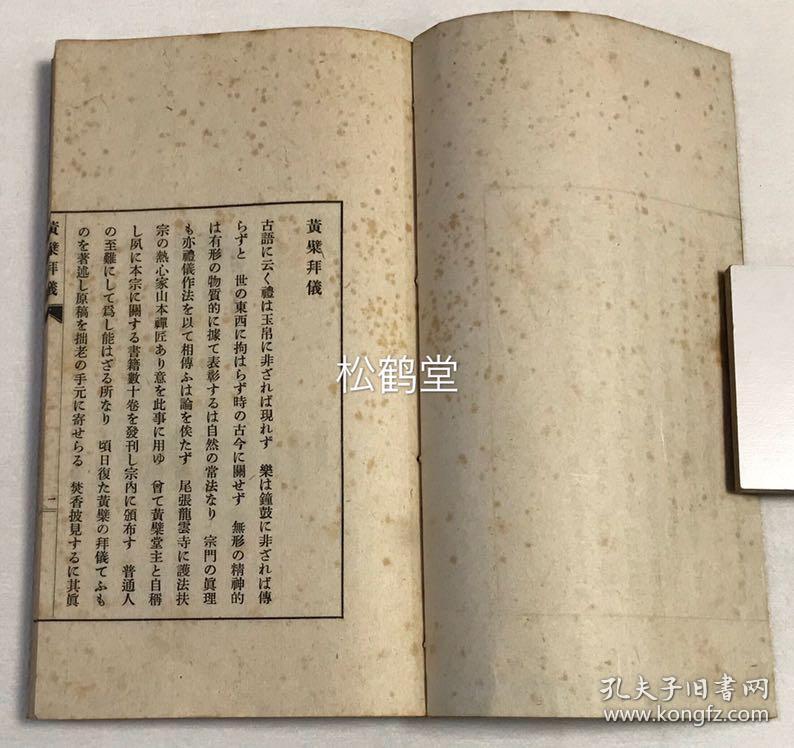 黃檗拜儀
古語に云く禮は玉帛に非ざれば現れず　樂は鐘鼓に非ざれば傳
らずと　世の東西に拘はらず時の古今に關せず　無形の精神的
は有形の物質的に據て表彰するは自然の常法なり　宗門の眞理
も亦禮儀作法を以て相傳ふは論を俟たず　尾張龍雲寺に護法扶
宗の熱心家山本禪匠あり意を此事に用ゆ　曾て黃檗堂主と自稱
し夙に本宗に關する書籍數十卷を發刊し宗內に頒布す　普通人
の至難にして爲し能はざる所なり　頃日復た黃檗の拜儀てふも
のを著述し原稿を拙老の手元に寄せらる　焚香披見するに其眞
黃檗拜儀
一
松鹤堂
孔夫子旧书网
www.kongfz.com